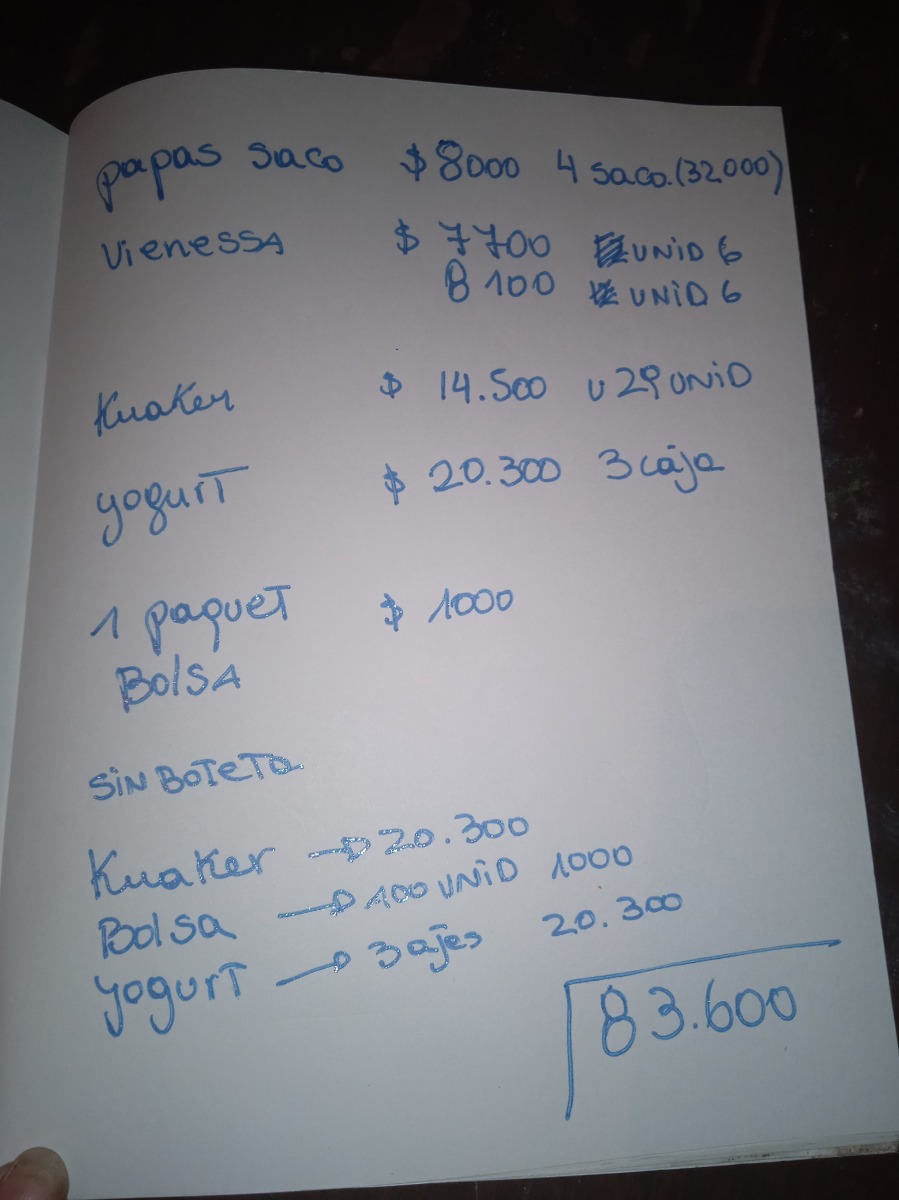 papas saco $ 8000 4 saco.(32000)
vienessa $ 7700 UNID 6
8100 UNID 6
Kuaker $ 14.500 U 29 UNiD
yogurt $ 20.300 3 cája
1 paquet $ 1000
Bolsa
sin Boteta
Kuaker → 20.300
Bolsa → 100 UNiD 1000
yogurt → 3 ajes 20.300
83.600